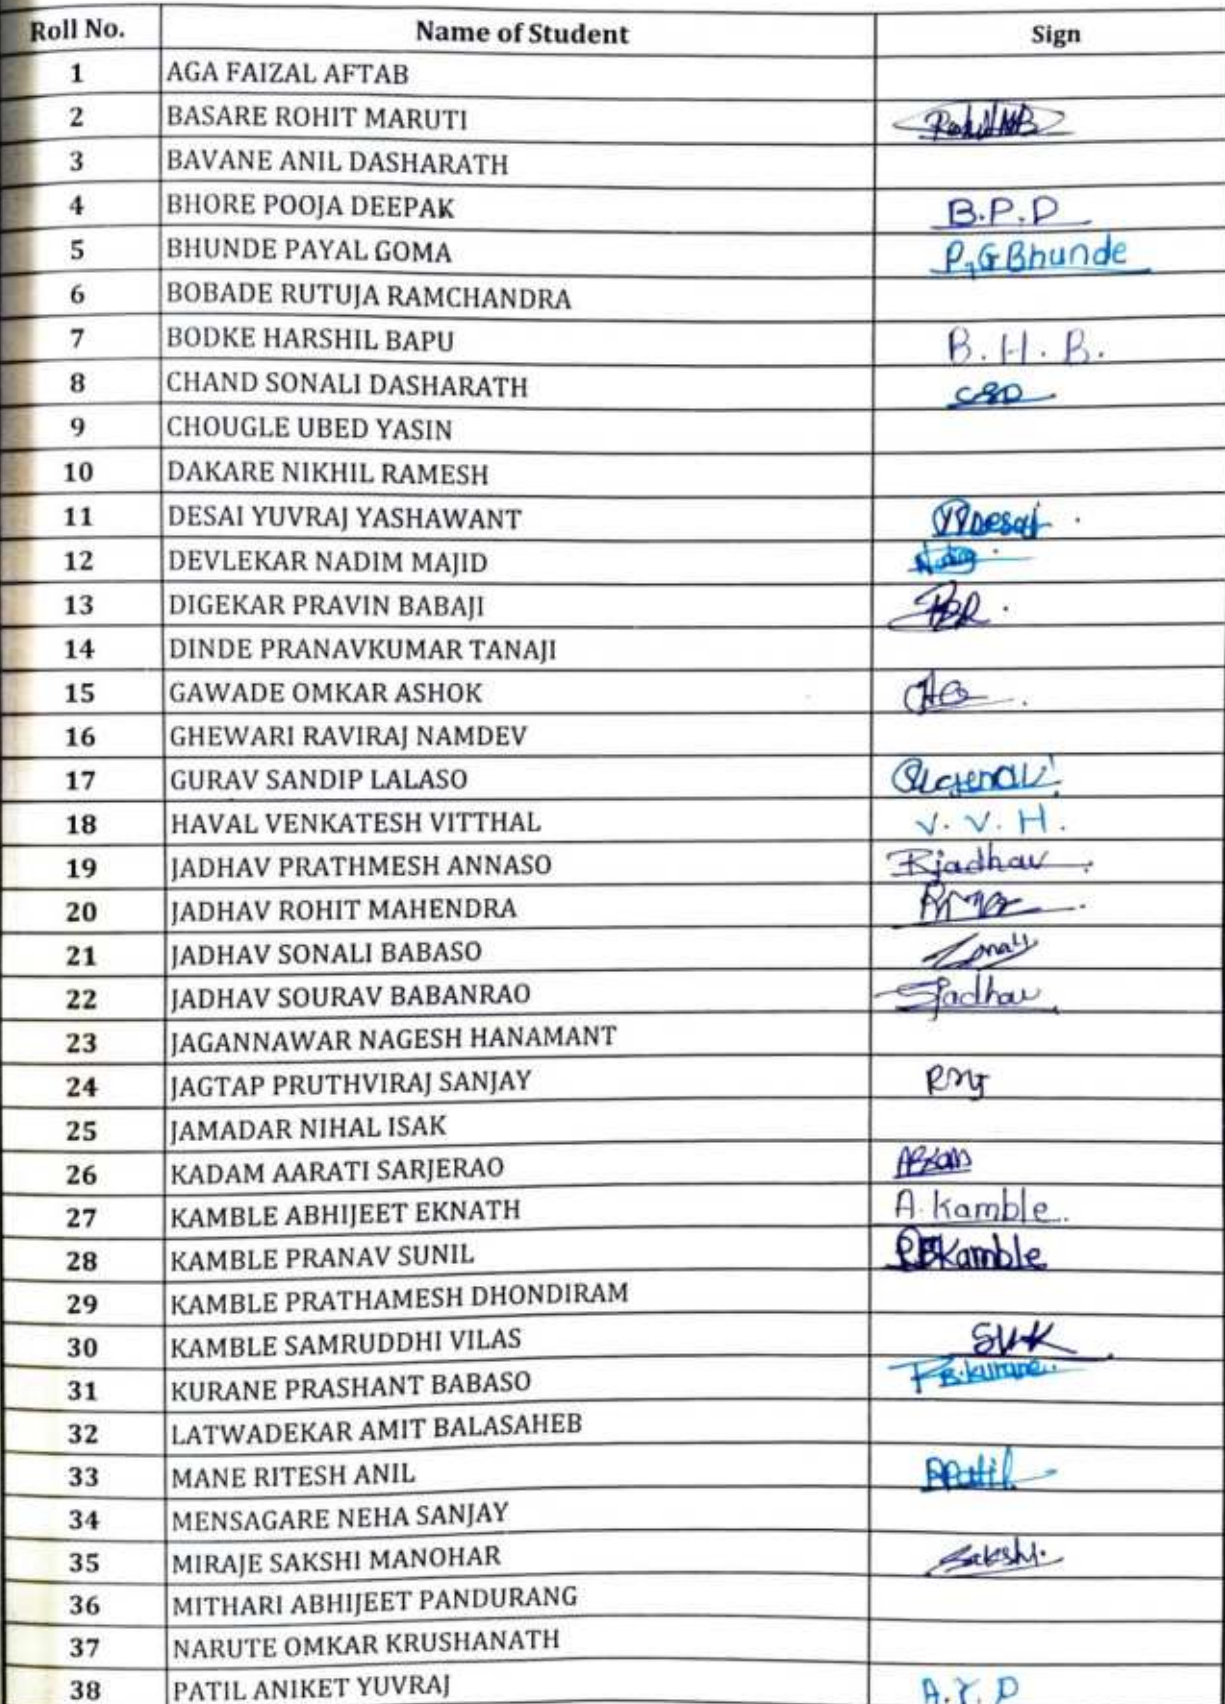 Roll No. Name of Student Sign
1 AGA FAIZAL AFTAB
2 BASARE ROHIT MARUTI
3 BAVANE ANIL DASHARATH
4 BHORE POOJA DEEPAK B.P.D
5 BHUNDE PAYAL GOMA P.G Bhunde
6 BOBADE RUTUJA RAMCHANDRA
7 BODKE HARSHIL BAPU B. H. B.
8 CHAND SONALI DASHARATH CSD
9 CHOUGLE UBED YASIN
10 DAKARE NIKHIL RAMESH
11 DESAI YUVRAJ YASHAWANT YYDesai
12 DEVLEKAR NADIM MAJID
13 DIGEKAR PRAVIN BABAJI
14 DINDE PRANAVKUMAR TANAJI
15 GAWADE OMKAR ASHOK
16 GHEWARI RAVIRAJ NAMDEV
17 GURAV SANDIP LALASO
18 HAVAL VENKATESH VITTHAL V. V. H.
19 JADHAV PRATHMESH ANNASO Pjadhav
20 JADHAV ROHIT MAHENDRA
21 JADHAV SONALI BABASO
22 JADHAV SOURAV BABANRAO Sjadhav
23 JAGANNAWAR NAGESH HANAMANT
24 JAGTAP PRUTHVIRAJ SANJAY
25 JAMADAR NIHAL ISAK
26 KADAM AARATI SARJERAO
27 KAMBLE ABHIJEET EKNATH A. Kamble.
28 KAMBLE PRANAV SUNIL Kamble
29 KAMBLE PRATHAMESH DHONDIRAM
30 KAMBLE SAMRUDDHI VILAS SVK
31 KURANE PRASHANT BABASO P.B.kurane.
32 LATWADEKAR AMIT BALASAHEB
33 MANE RITESH ANIL
34 MENSAGARE NEHA SANJAY
35 MIRAJE SAKSHI MANOHAR Sakshi.
36 MITHARI ABHIJEET PANDURANG
37 NARUTE OMKAR KRUSHANATH
38 PATIL ANIKET YUVRAJ A.Y. P